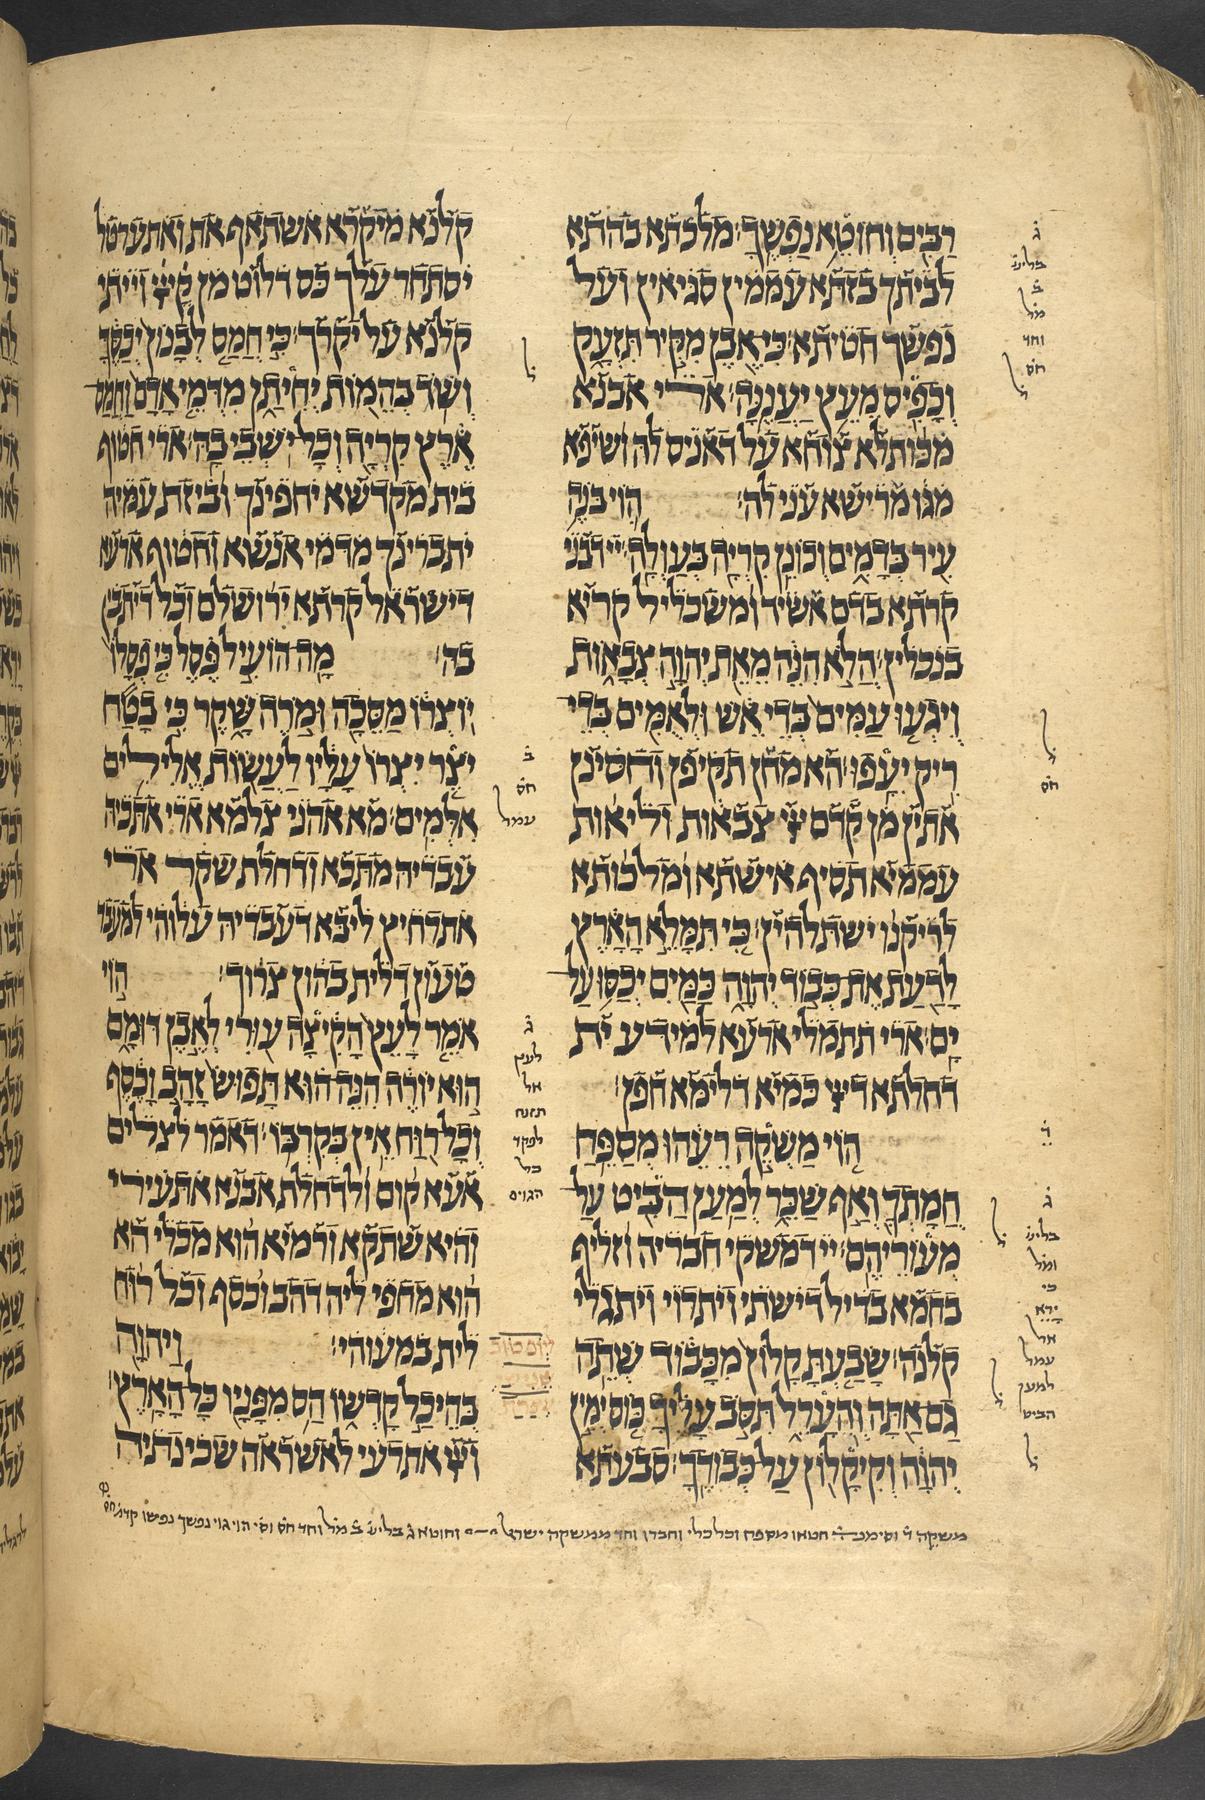 רַבִּים וְחוֹטֵא נַפְשֶׁךָ׃ מלכתא בהתא
לביתך בזתא עממין סגיאין ועל
נפשך חטיתא׃ כִּי אֶבֶן מִקִּיר תִּזְעָק
וְכָפִיס מֵעֵץ יַעֲנֶנָּה׃ ארי אבנא
מכותלא צוחא על דאניס לה ושיפא
מגו מרישא עני לה׃ הוֹי בֹּנֶה
עִיר בְּדָמִים וְכוֹנֵן קִרְיָה בְּעַוְלָה׃ יי דבני
קרתא בדם אשיד ומשכליל קריא
בנכלין׃ הֲלֹא הִנֵּה מֵאֵת יְהוָה צְבָאוֹת
וְיִגְעוּ עַמִּים בְּדֵי אֵשׁ וּלְאֻמִּים בְּדֵי
רִיק יִעָפוּ׃ הא מחן תקיפן וחסינן
אתין מן קדם צבאות ולי אות
עממיא תסיף אישתא ומלכותא
לריקנו ישתלהין׃ כִּי תִּמָּלֵא הָאָרֶץ
לָדַעַת אֶת כְּבוֹד יְהוָה כַּמַּיִם יְכַסּוּ עַל
יָם׃ ארי תתמלי ארעא למידע ית
דחלתא כמיא דלימא חפן׃
הוֹי מַשְׁקֵה רֵעֵהוּ מְסַפֵּחַ
חֲמָתְךָ וְאַף שַׁכֵּר לְמַעַן הַבִּיט עַל
מְעוֹרֵיהֶם׃ יי דמשקי חבריה וזליף
בחמא בדיל דישתי ויתרוי ויתגלי
קלנה׃ שָׂבַעְתָּ קָלוֹן מִכָּבוֹד שְׁתֵה
גַם אַתָּה וְהֵעָרֵל תִּסּוֹב עָלֶיךָ כּוֹס יְמִין
יְהוָה וְקִיקָלוֹן עַל כְּבוֹדֶךָ׃ סבעתא
קלנא מיקרא אשת אף את ואתערטל
יסתחר עלך כס דלוט מן קדם וייתי
קלנא על יקרך׃ כִּי חֲמַס לְבָנוֹן יְכַסֶּךָּ
וְשֹׁד בְּהֵמוֹת יְחִיתַן מִדְּמֵי אָדָם וַחֲמַס
אֶרֶץ קִרְיָה וְכָל יֹשְׁבֵי בָהּ׃ ארי חטוף
בית מקדשא יחפינך וביזת עמיה
יתברינך מדמי אנשא וחטוף ארעא
דישראל קרתא ירושלם וכל דיתבין
בה׃ מָה הוֹעִיל פֶּסֶל כִּי פְסָלוֹ
יֹצְרוֹ מַסֵּכָה וּמוֹרֶה שָּׁקֶר כִּי בָטַח
יֹצֵר יִצְרוֹ עָלָיו לַעֲשׂוֹת אֱלִילִים
אִלְּמִים׃ מא אהני צלמא ארי אתכיה
עבדיה מתכא ודחלת שקר ארי
אתרחיץ ליבא דעבדיה עלוהי למעבד
טעון דלית בהון צרוך׃ הוֹי
אֹמֵר לָעֵץ הָקִיצָה עוּרִי לְאֶבֶן דּוּמָם
הוּא יוֹרֶה הִנֵּה הוּא תָּפוּשׂ זָהָב וָכֶסֶף
וְכָל רוּחַ אֵין בְּקִרְבּוֹ׃ דאמר לצלים
אעא קום ולדחלת אבנא אתעירי
והיא שתקא ודמיא הוא מכלי הא
הוא מחפי ליה דהב וכסף וכל רוח
לית במעוהי׃ וַיהוָה
בְּהֵיכַל קָדְשׁוֹ הַס מִפָּנָיו כָּל הָאָרֶץ׃
אתרעי לאשראה שכינתיה
ג
בליש
ב
מל
וחד
חס
ל
ל
חס
ב
חס
עמל
ג
לעץ
אל
תזנח
לפקד
כל
הגוים
ד
ג
בליש
ומל
כי
ירא
און
עמל
למען
הביט
יום טוב
משקה ד וסימנ חטאו מספח וכל כלי וחברו וחד ממשקה ישראל וחוטא ג בליש ב מל וחד חס וסי הוי גוי נפשך נפשו